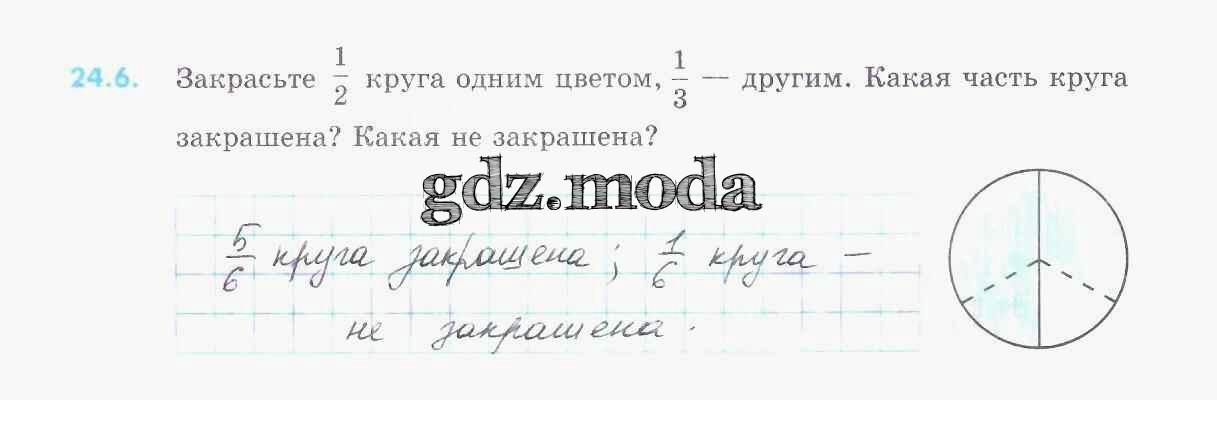 24.6. Закрасьте 1/2 круга одним цветом, 1/3 — другим. Какая часть круга
закрашена? Какая не закрашена?
gdz.moda
5/6 круга закрашена; 1/6 круга —
не закрашена.